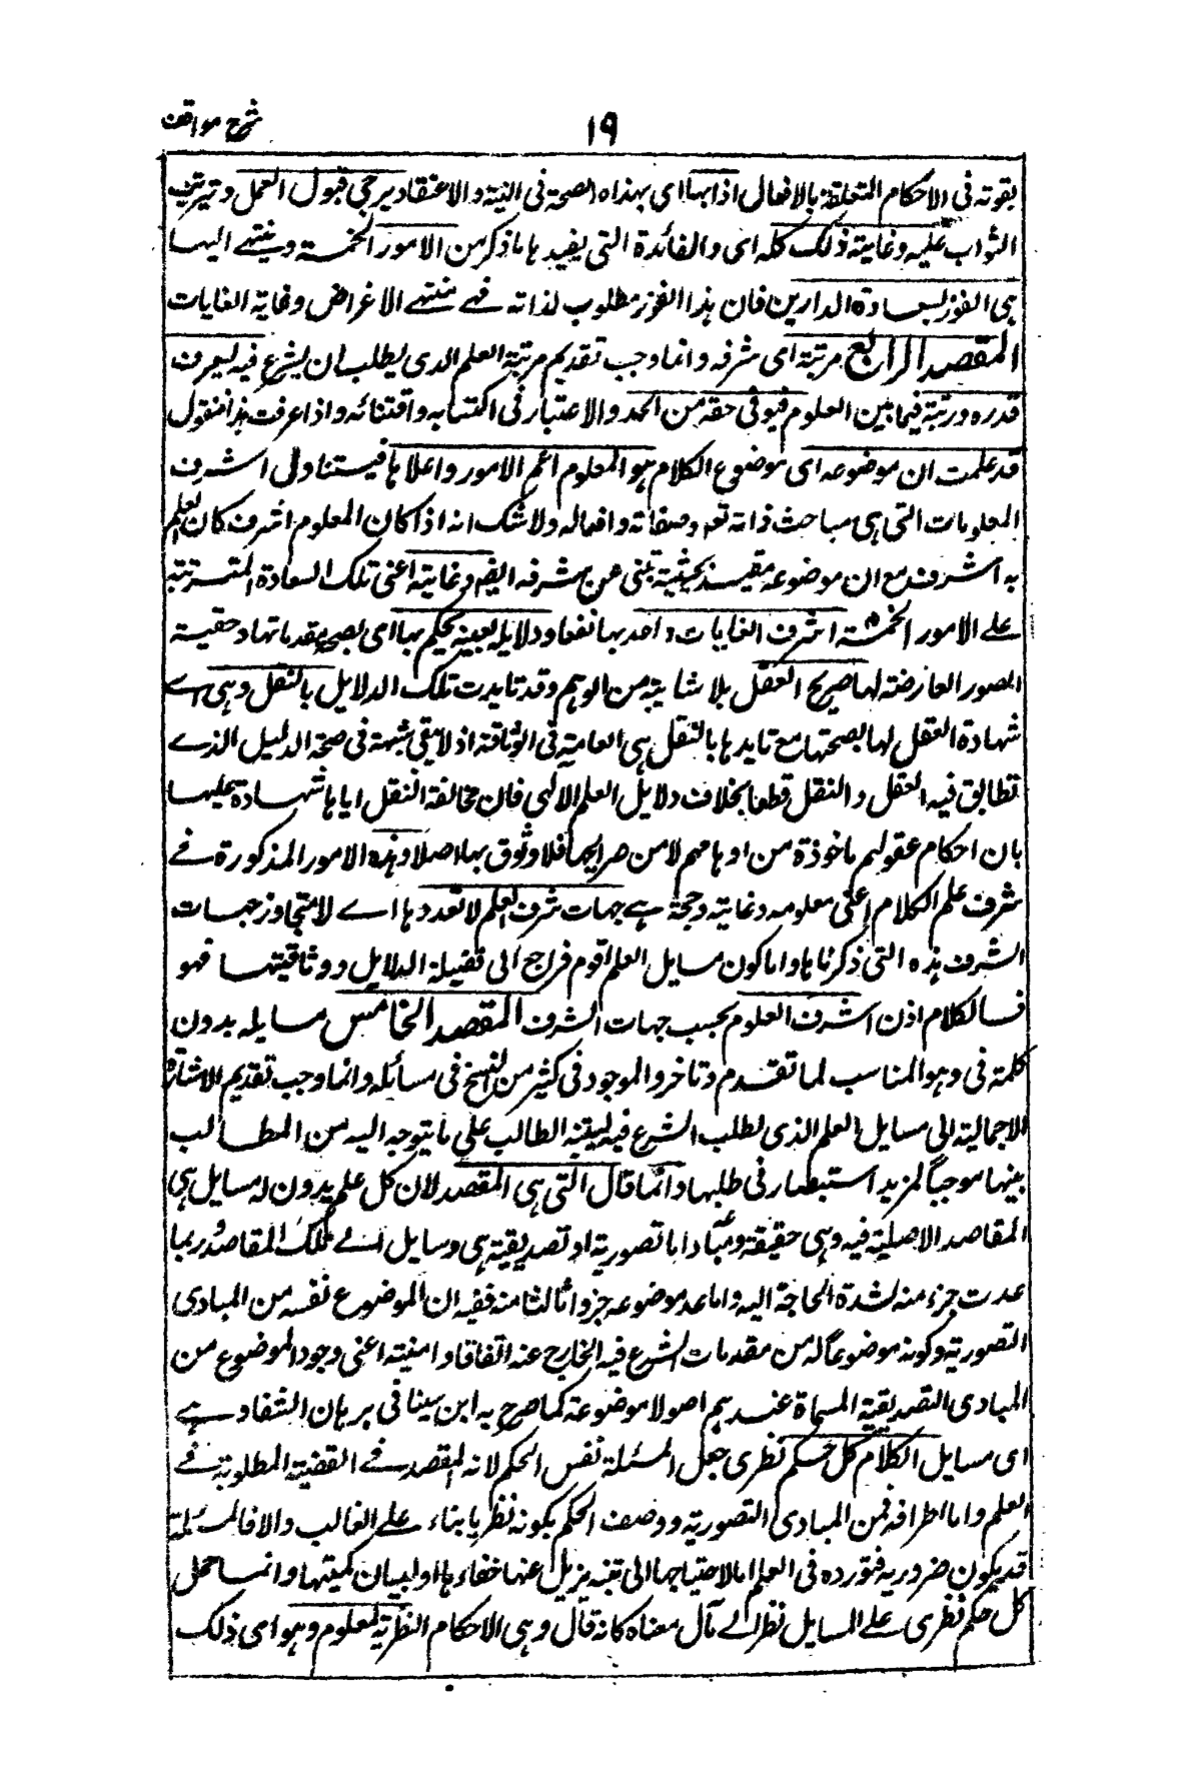 ١٩ شرح مواقف
بقوته فى الاحكام المتعلقة بالافعال اذ ابها اى بهذه الصحة فى النية والاعتقاد يرجى قبول العمل وترتب
الثواب عليه وغاية ذلك كله اى والفائدة التى يفيدها ما ذكر من الامور الخمسة وينتهے اليها
هى الفوز بسعادة الدارين فان هذا الفوز مطلوب لذاته فهے منتهے الاغراض وغاية الغايات
المقصد الرابع مرتبة اى شرفه وانما وجب تقديم مرتبة العلم الذى يطلب ان يشرع فيه ليعرف
قدره ورتبة فيما بين العلوم فيوفى حقه من الجد والاعتبار فى اكتسابه واقتنائه واذا عرفت هذا فنقول
قد علمت ان موضوعه اى موضوع الكلام هو المعلوم اعم الامور واعلاها فيستناول اشرف
المعلومات التى هى مباحث ذاته تعہ وصفاته وافعاله ولا شك انه اذا كان المعلوم اشرف كان العلم
به اشرف مع ان موضوعه مقيد بحيثية تنبئ عن شرفه ايضہ وغاية اعنى تلك السعادة المترتبة
علے الامور الخمسة اشرف الغايات واجديها نفعا ودلايله يقينية يحكم بها اى بصحة مقدماتها وحقية
الصور العارضة لها صريح العقل بلا شايبة من الوهم وقد تايدت تلك الدلايل بالنقل وهى اے
شهادة العقل لها بصحتها مع تايدها بالنقل هى الغاية فى الوثاقة اذ لا يبقى شبهة فى صحة الدليل الذے
تطابق فيه العقل والنقل قطعا بخلاف دلايل العلم الالهى فان مخالفة النقل اياها شهادة عليها
بان احكام عقولهم ماخوذة من اوهامهم لا من صرايحها فلا وثوق بها اصلا وهذه الامور المذكورة فے
شرف علم الكلام اعنى معلومه وغايته وحجته هے جهات شرف العلم لا تعددها اے لا تتجاوز جهات
الشرف هذه التى ذكرناها واما كون مسايل العلم اقوم فراجح الى فضيلة الدلايل ووثاقيتها فهو
فالكلام اذن اشرف العلوم بحسب جهات الشرف المقصد الخامس مسايله بدون
كلمة فى وهو المناسب لما تقدم وتاخر والموجود فى كثير من النسخ فى مسائله وانما وجب تقديم الاشارة
الاجمالية الى مسايل العلم الذى يطلب الشرع فيه ليتنبه الطالب على ما يتوجه اليه من المطالب
بينها موجبا لمزيد استبصار فى طلبها وانما قال التى هى المقصد لان كل علم يدون له مسايل هى
المقاصد الاصلية فيه وهى حقيقة ومباد اما تصورية او تصديقية هى وسايل الے تلك المقاصد وربما
عدت جزء منه لشدة الحاجة اليه واما عد موضوعه جزوا ثالثا منه ففيه ان الموضوع نفسه من المبادى
التصورية وكونه موضوعا له من مقدمات الشرع فيه الخارج عنه اتفاقا وانيته اعنى وجود الموضوع من
المبادى التصديقية المسماة عندهم اصولا موضوعة كما صرح به ابن سينا فى برهان الشفا وهے
اى مسايل الكلام كل حكم نظرى جعل المسئلة نفس الحكم لانه المقصد فے القضية المطلوبة فے
العلم واما اطرافه فمن المبادى التصورية ووصف الحكم بكونه نظريا بناء علے الغالب والا فالمسئلة
قد يكون ضرورية فتورده فى العلم اما لاحتياجها الى تنبه يزيل عنها خفاءها او لبيان كميتها وانما حمل
كل حكم نظرى علے المسايل نظرا لے مآل معناه كانه قال وهى الاحكام النظرية لمعلوم وهو اى ذلك